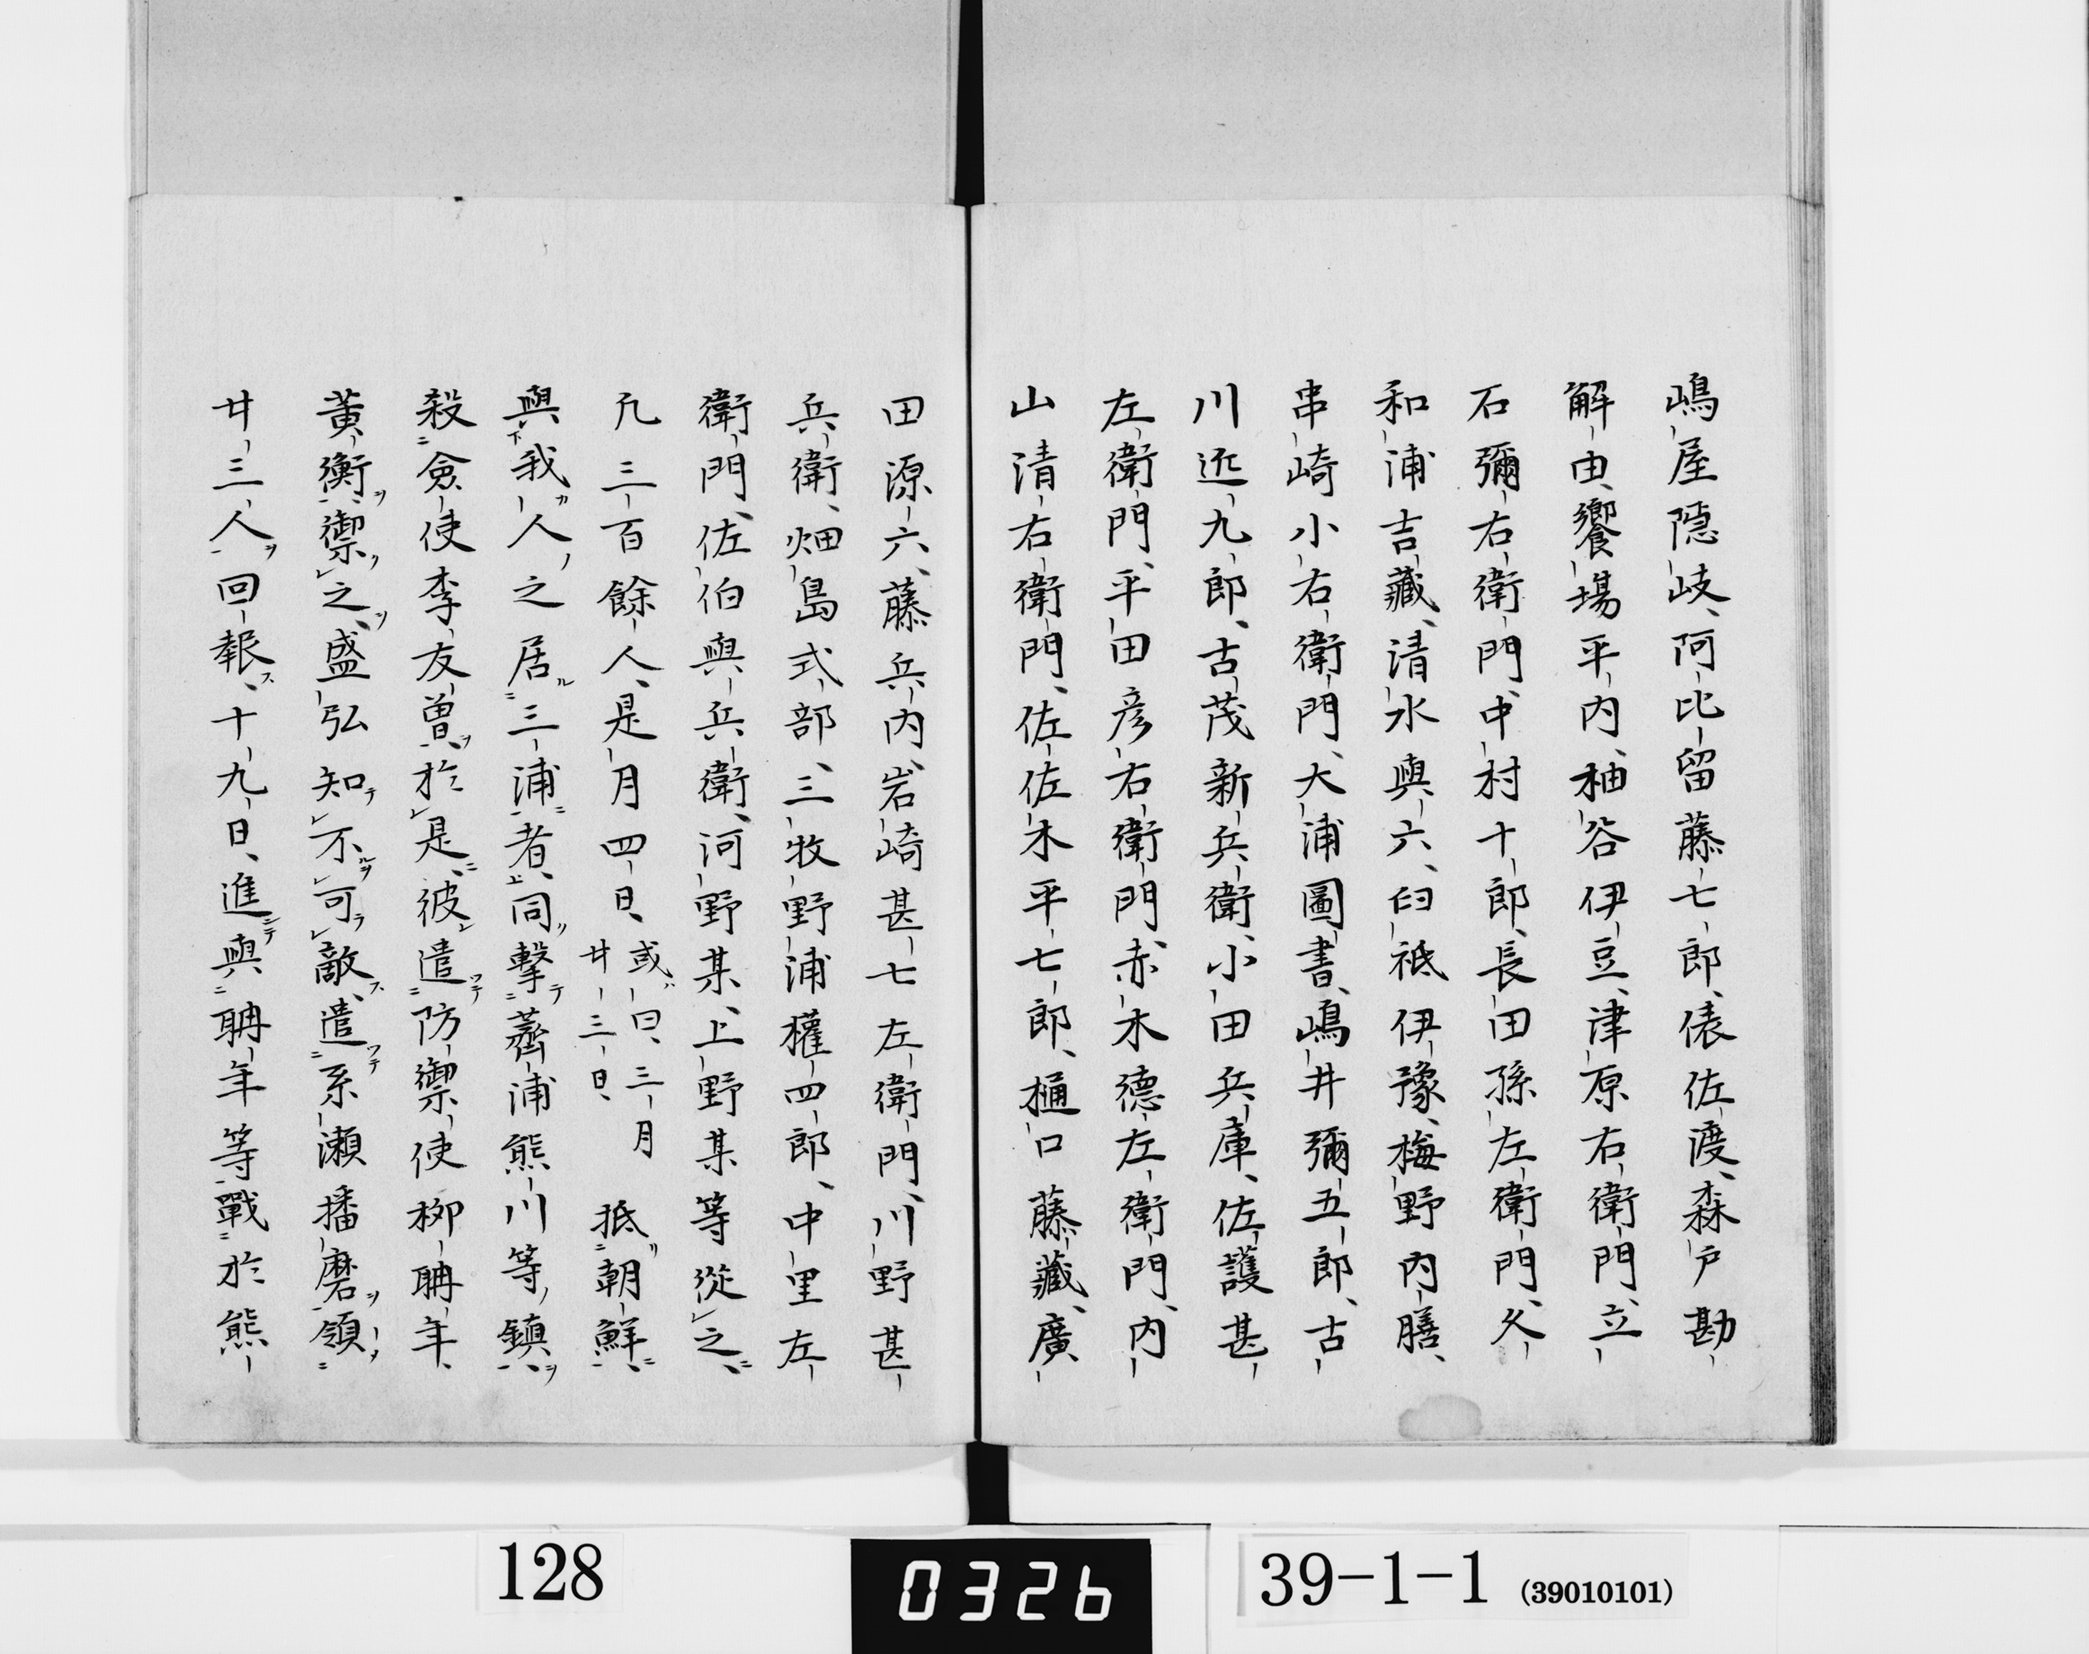 嶋屋隠岐、阿比留藤七郎、俵佐渡、森戸勘
解由、饗場平内、柚谷伊豆、津原右衛門、立
石彌右衛門、中村十郎、長田孫左衛門、久
和浦吉藏、清水與六、臼祗伊豫、梅野内膳、
串崎小右衛門、大浦圖書、嶋井彌五郎、古
川近九郎、古茂新兵衛、小田兵庫、佐護甚
左衛門、平田彦右衛門、赤木德左衛門、内
山清右衛門、佐佐木平七郎、樋口藤藏、廣
田源六、藤兵内、岩崎甚七左衛門、川野甚
兵衛、畑島式部、三牧野浦權四郎、中里左
衛門、佐伯與兵衛、河野某、上野某等從之、
凢三百餘人、是月四日、或曰、三月廿三日、抵朝鮮、
與我人之居三浦者、同擊薺浦熊川等鎮、
殺僉使李友曽、於是彼遣防禦使柳聃年、
黄衡、禦之、盛弘知不可敵、遣系瀬播磨領
廿三人回報、十九日、進與聃年等戰於熊
128
0326
39-1-1 (39010101)